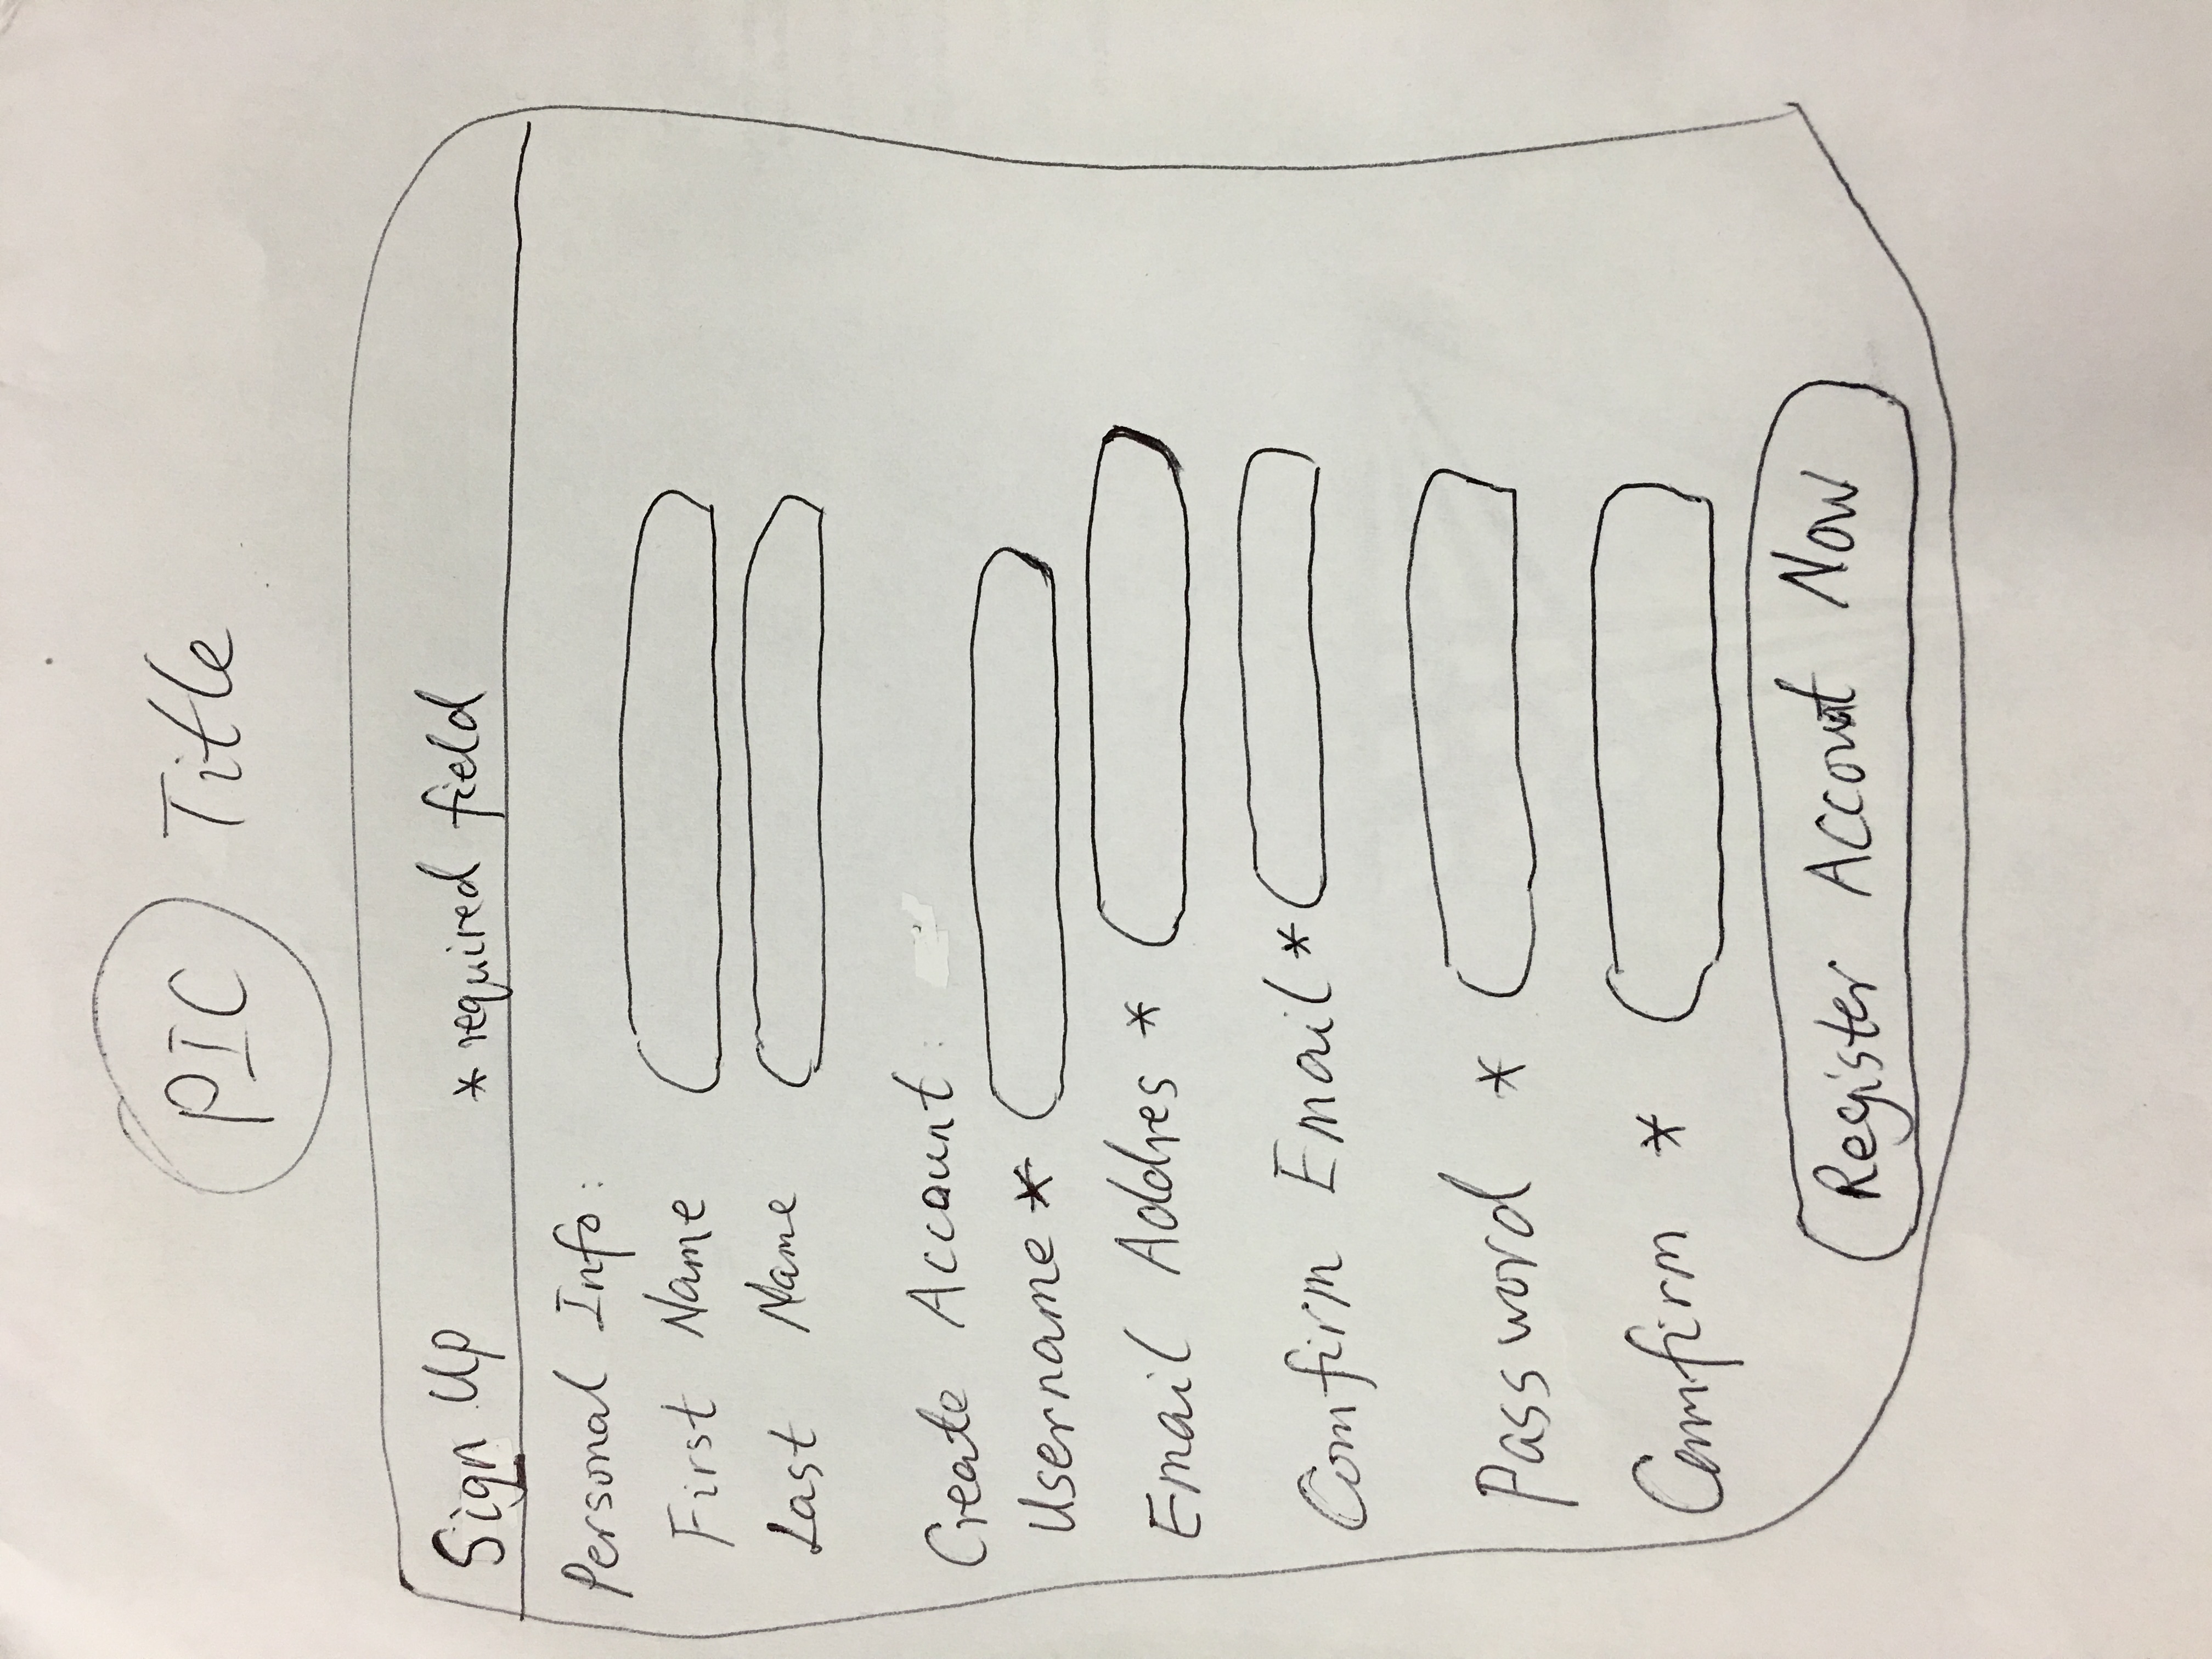 PIC Title
Sign Up * required field
Personal Info:
First Name
Last Name
Create Account:
Username *
Email Addres *
Comfirm Email *
Password *
Comfirm *
Register Account Now